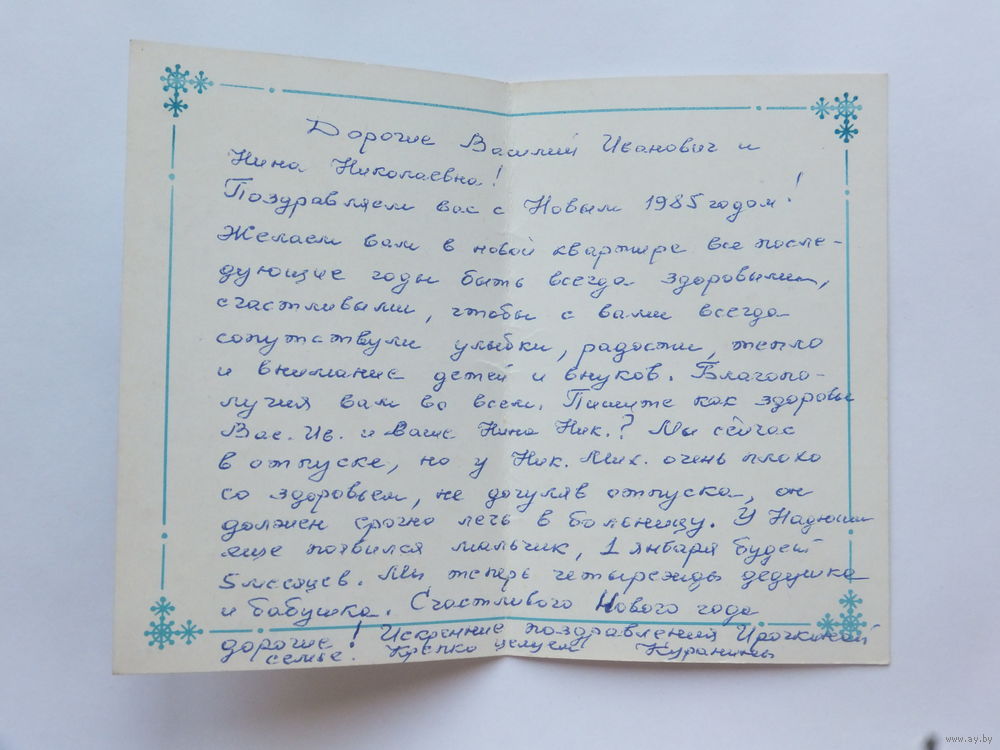 Дорогие Василий Иванович и
Нина Николаевна!
Поздравляем вас с Новым 1985 годом!
Желаем вам в новой квартире все после-
дующие годы быть всегда здоровыми,
счастливыми, чтобы с вами всегда
сопутствули улыбки, радости, тепло
и внимание детей и внуков. Благопо-
лучия вам во всем. Пишите как здоровы
Вас. Ив. и Ваше Нина Ник.? Мы сейчас
в отпуске, но у Ник. Мих. очень плохо
со здоровьем, не догуляв отпуска, он
должен срочно лечь в больницу. У Надюши
еще появился мальчик, 1 января будет
5 месяцев. Мы теперь четырежды дедушка
и бабушка. Счастливого Нового года
дорогие! Искренние поздравления Ирочкиной
семье. Крепко целуем Куранины
www.ay.by